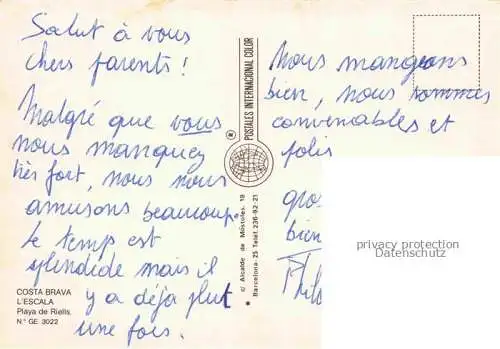 Salut à vous
chers parents !
Malgré que vous
nous manquez
très fort, nous nous
amusons beaucoup.
Le temps est
splendide mais il
y a déjà plut
une fois.
COSTA BRAVA
L'ESCALA
Playa de Riells.
N.° GE. 3022
POSTALES INTERNACIONAL COLOR
c/ Alcalde de Móstoles, 18
Barcelona-25 Telef. 236-92-21
Nous mangeons
bien, nous sommes
convenables et
polis
gro
bien
privacy protection
Datenschutz